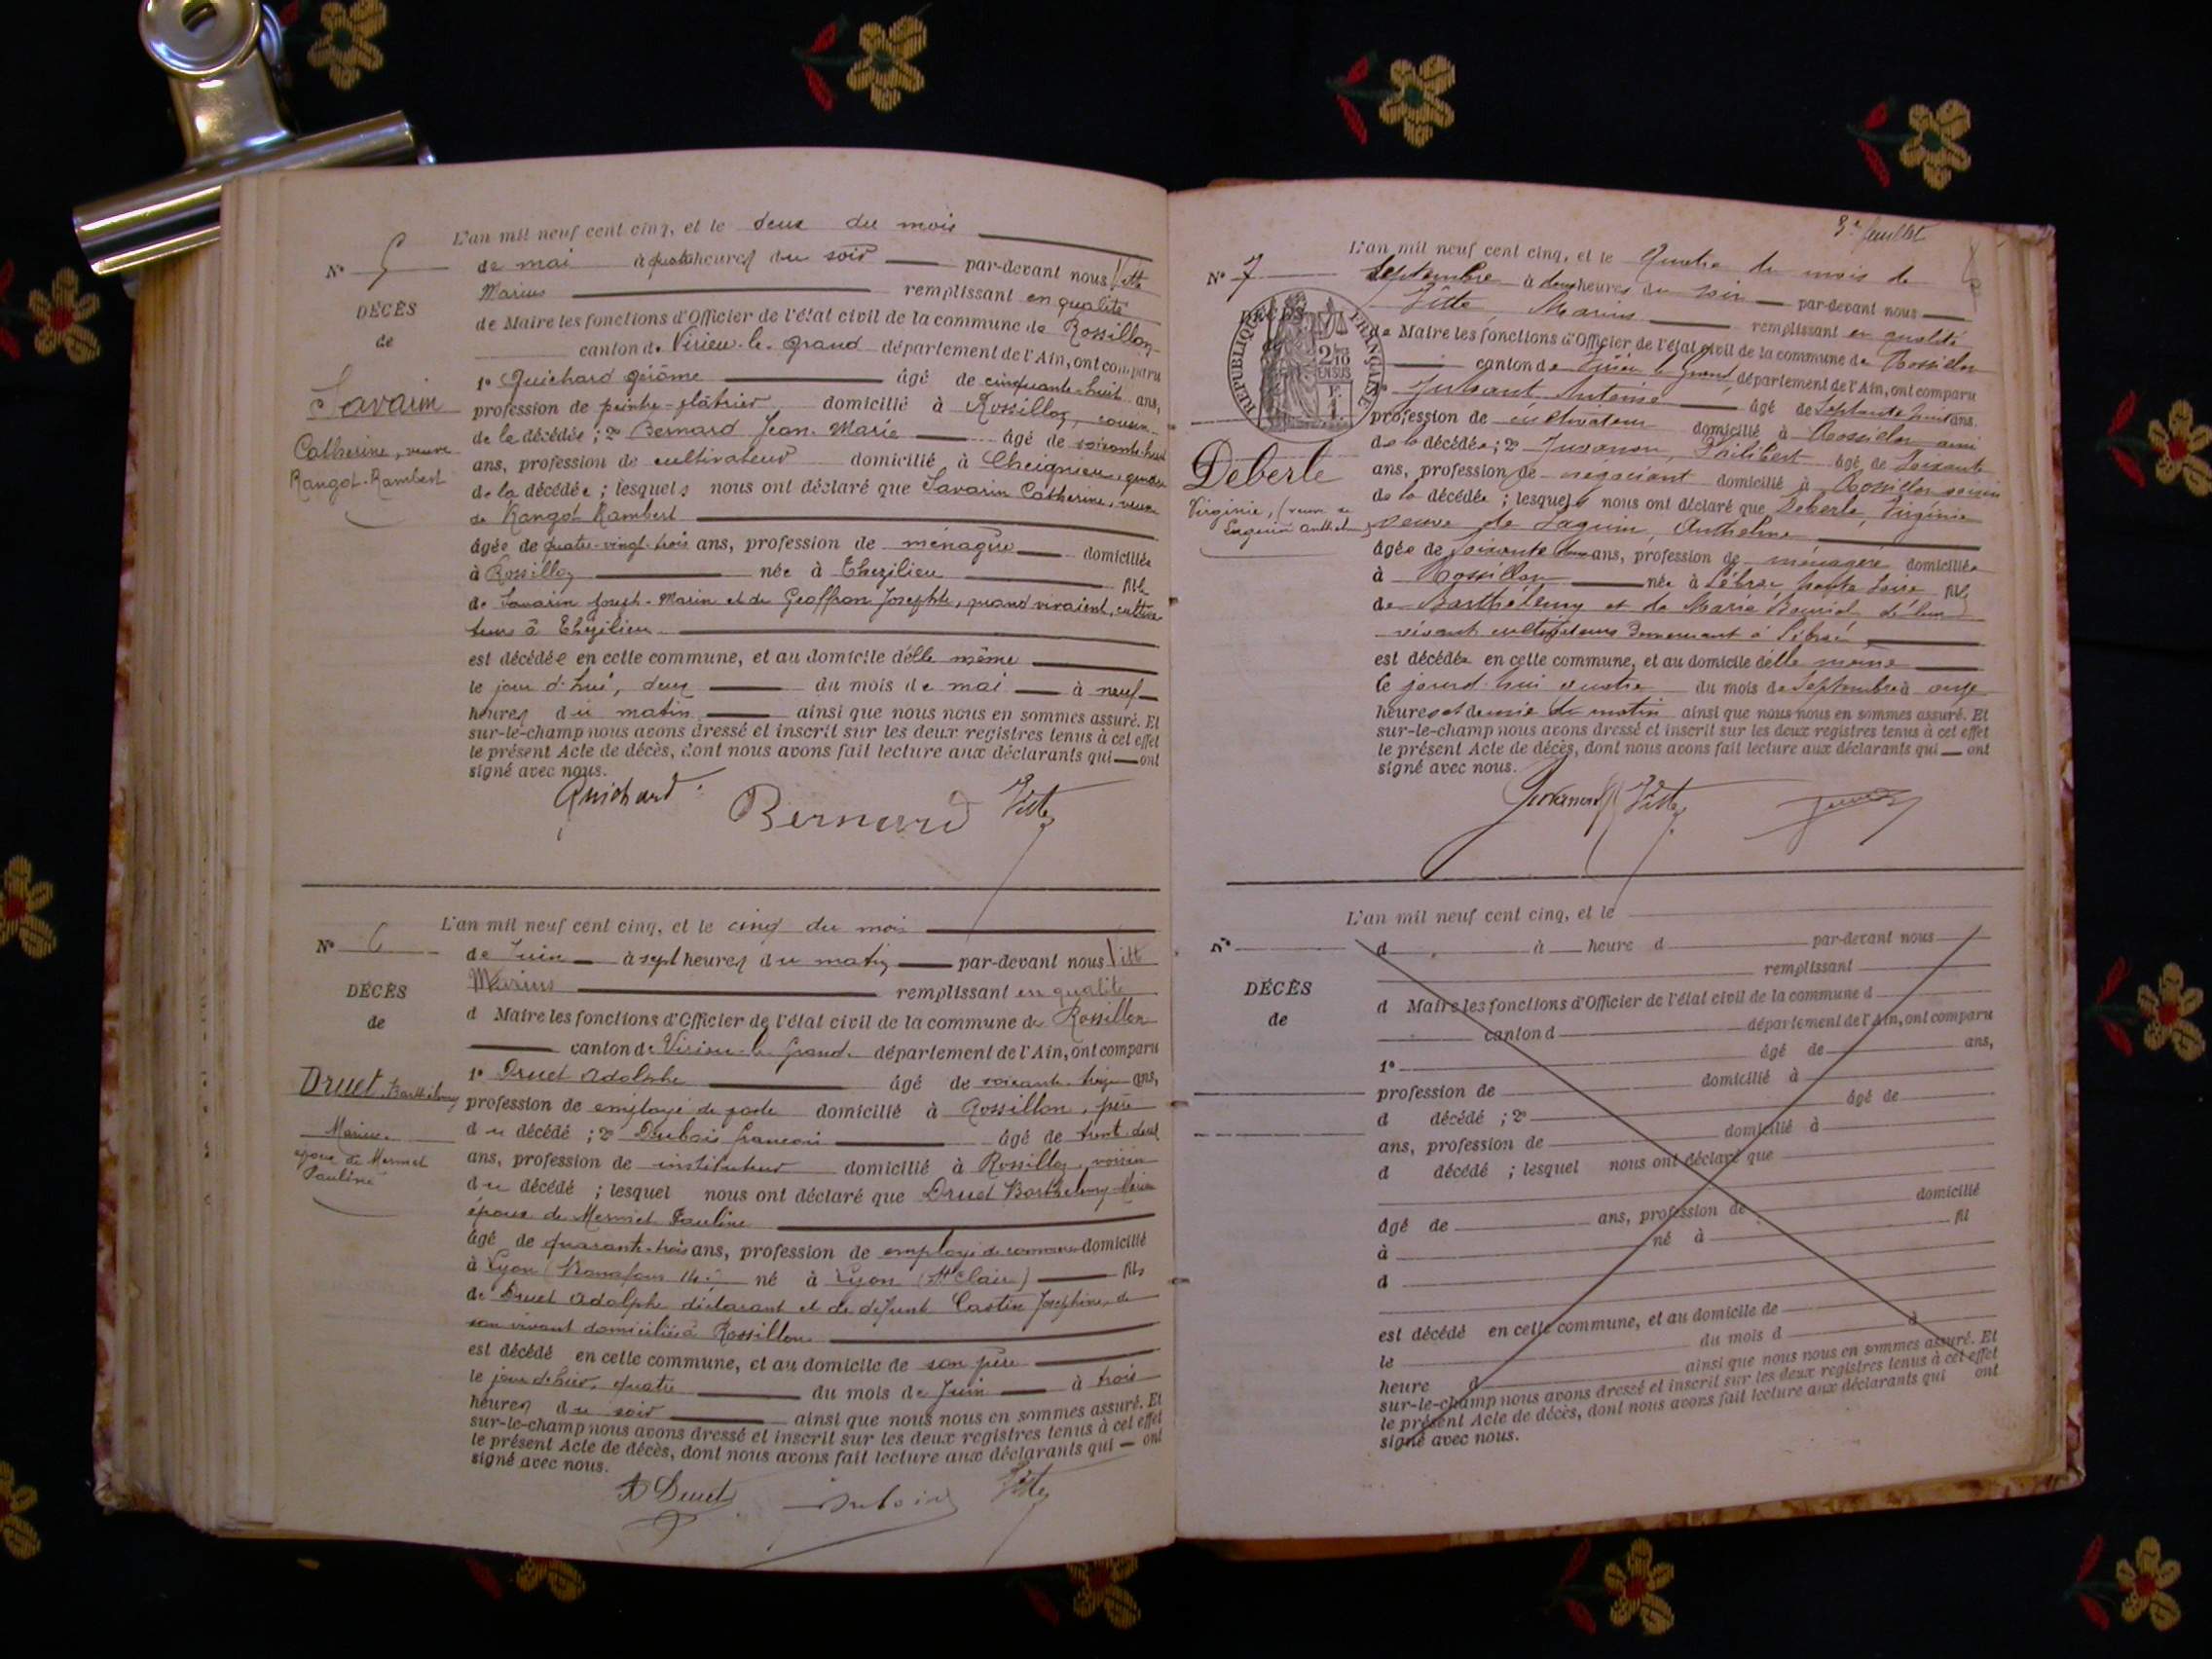 L'an mil neuf cent cinq, et le deux du mois
N° 5 de mai à quatre heures du soir par-devant nous Vitte
Marius remplissant en qualité
DÉCÈS
de Maire les fonctions d'Officier de l'état civil de la commune de Rossillon
de
canton de Virieu-le-grand département de l'Ain, ont comparu
1° Guichard Jérôme âgé de cinquante-huit ans,
Savarin
profession de peintre-plâtrier domicilié à Rossillon, cousin
de la décédée ; 2° Bernard Jean-Marie âgé de soixante-huit
Catherine, veuve
ans, profession de cultivateur domicilié à Cheignieu, gendre
Rangot-Rambert
de la décédée ; lesquels nous ont déclaré que Savarin Catherine, veuve
de Rangot Rambert
âgée de quatre-vingt-trois ans, profession de ménagère domiciliée
à Rossillon née à Thézilieu fille
de Savarin Joseph-Marin et de Geoffron Josephte, quand vivaient, cultiva-
teurs à Thézilieu
est décédée en cette commune, et au domicile d'elle même
le jour d'hui, deux du mois de mai à neuf
heures du matin ainsi que nous nous en sommes assuré. Et
sur-le-champ nous avons dressé et inscrit sur les deux registres tenus à cet effet
le présent Acte de décès, dont nous avons fait lecture aux déclarants qui ont
signé avec nous.
Guichard Bernard Vitte
L'an mil neuf cent cinq, et le cinq du mois
N° 6 de Juin à sept heures du matin par-devant nous Vitte
Marius remplissant en qualité
DÉCÈS
d Maire les fonctions d'Officier de l'état civil de la commune de Rossillon
de
canton de Virieu-le-Grand département de l'Ain, ont comparu
1° Druet Adolphe âgé de soixante-treize ans,
Druet Barthélemy
profession de employé de poste domicilié à Rossillon, père
du décédé ; 2° Dubois françois âgé de trent-deux
Marius
ans, profession de instituteur domicilié à Rossillon, voisin
époux de Mermet
Pauline
du décédé ; lesquel nous ont déclaré que Druet Barthélemy Marius
époux de Mermet Pauline
âgé de quarante-trois ans, profession de employé de commerce domicilié
à Lyon né à Lyon (St Clair) fils
de Druet Adolphe déclarant et de défunte Castin Joséphine, de
son vivant domiciliée à Rossillon
est décédé en cette commune, et au domicile de son père
le jour d'hier, quatre du mois de Juin à trois
heures du soir ainsi que nous nous en sommes assuré. Et
sur-le-champ nous avons dressé et inscrit sur les deux registres tenus à cet effet
le présent Acte de décès, dont nous avons fait lecture aux déclarants qui ont
signé avec nous.
A Druet Dubois Vitte
3e feuillet
L'an mil neuf cent cinq, et le Quatre du mois de
N° 7 Septembre à deux heures du soir par-devant nous
Vitte, Marius remplissant en qualité
DÉCÈS
RÉPUBLIQUE FRANÇAISE
2/10 EN SUS
de Maire les fonctions d'Officier de l'état civil de la commune de Rossillon
canton de Virieu le Grand, département de l'Ain, ont comparu
1° Antoine âgé de Septante huit ans,
profession de cultivateur domicilié à Rossillon ami
de la décédée ; 2° Juvanon, Philibert âgé de Soixante
Deberle
ans, profession de négociant domicilié à Rossillon voisin
Virginie, (veuve de
Laguin Anthelme)
de la décédée ; lesquels nous ont déclaré que Deberle, Virginie
veuve de Laguin, Anthelme
âgée de Soixante ans, profession de ménagère domiciliée
à Rossillon née à haute Loire fille
de Barthélemy et de Marie de leur
vivant cultivateurs demeurant à
est décédée en cette commune, et au domicile d'elle même
le jourd'hui quatre du mois de Septembre à onze
heures et demie du matin ainsi que nous nous en sommes assuré. Et
sur-le-champ nous avons dressé et inscrit sur les deux registres tenus à cet effet
le présent Acte de décès, dont nous avons fait lecture aux déclarants qui ont
signé avec nous.
Juvanon Vitte
L'an mil neuf cent cinq, et le
N° d à heure d par-devant nous
remplissant
DÉCÈS
d Maire les fonctions d'Officier de l'état civil de la commune d
de
canton d département de l'Ain, ont comparu
1° âgé de ans,
profession de domicilié à
d décédé ; 2° âgé de
ans, profession de domicilié à
d décédé ; lesquel nous ont déclaré que
âgé de ans, profession de domicilié
à né à fil
d
est décédé en cette commune, et au domicile de
le du mois d à
heure d ainsi que nous nous en sommes assuré. Et
sur-le-champ nous avons dressé et inscrit sur les deux registres tenus à cet effet
le présent Acte de décès, dont nous avons fait lecture aux déclarants qui ont
signé avec nous.